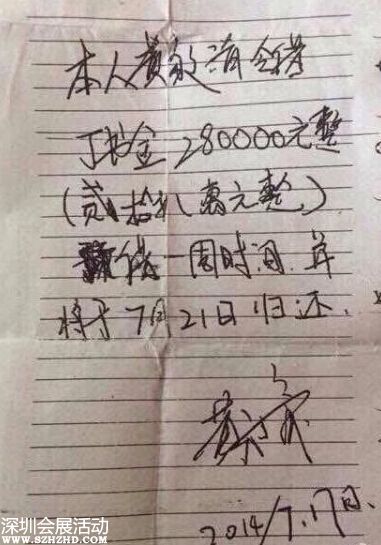 本人黄 清
金280000元整
(贰拾八萬元整)
借一周时间.并
将于7月21日归还.
黄
2014/7.17日.
深圳会展活动
WWW.SZHZHD.COM